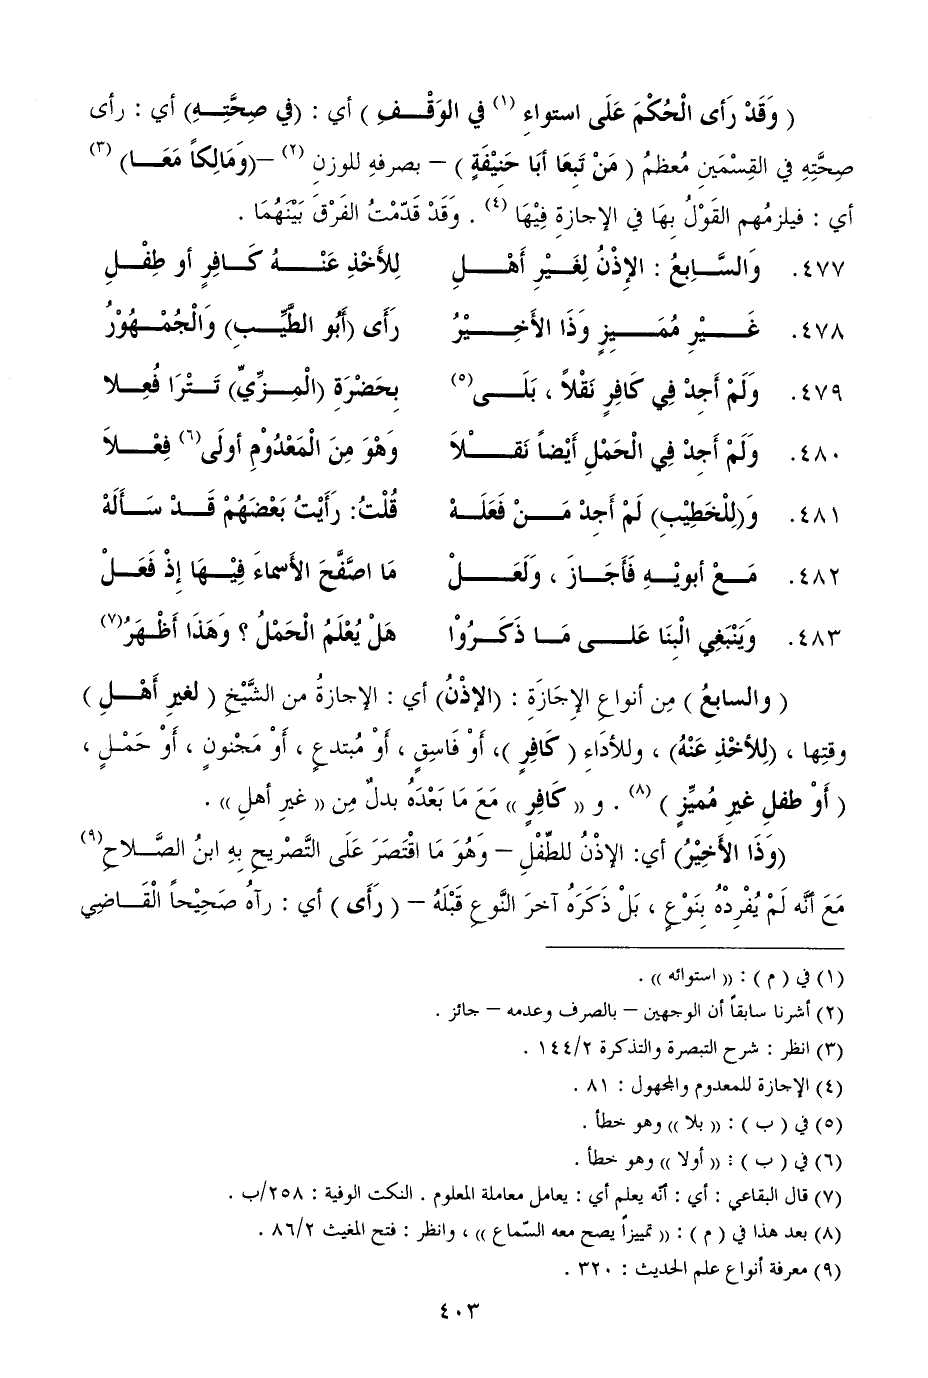 ( وَقَدْ رَأى الْحُكْمَ عَلَى استواءِ (١) في الوَقْفِ ) أي : (في صِحَّتِهِ) أي : رأى
صِحَّتِهِ في القِسْمَينِ مُعظمُ ( مَنْ تَبِعَا أبَا حَنِيفَةٍ ) – بصرفهِ للوزنِ (٢) –(وَمَالِكاً مَعَا) (٣)
أي : فيلزمُهم القَوْلُ بهَا في الإجازةِ فِيْهَا (٤) . وَقَدْ قَدّمْتُ الفَرْقَ بَيْنَهُمَا .
٤٧٧. وَالسَّابِعُ : الإذْنُ لِغَيْرِ أهْلِ لِلأخْذِ عَنْهُ كَافِرٍ أو طِفْلِ
٤٧٨. غَيْرِ مُمَيِزٍ وَذَا الأخِيْرُ رَأَى (أَبُو الطَّيِّبِ) وَالْجُمْهُوْرُ
٤٧٩. وَلَمْ أجِدْ فِي كَافِرٍ نَقْلاً ، بَلَى (٥) بِحَضْرَةِ (الْمِزِّيِّ) تَتْرَا فُعِلا
٤٨٠. وَلَمْ أجِدْ فِي الْحَمْلِ أيْضاً نَقْلاَ وَهْوَ مِنَ الْمَعْدُوْمِ أولَى (٦) فِعْلاَ
٤٨١. وَ(لِلْخَطِيْبِ) لَمْ أجِدْ مَنْ فَعَلَهْ قُلْتُ: رَأيْتُ بَعْضَهُمْ قَدْ سَألَهْ
٤٨٢. مَعْ أبويْهِ فَأجَازَ ، وَلَعَلْ مَا اصَّفَّحَ الأسماءَ فِيْهَا إذْ فَعَلْ
٤٨٣. وَيَنْبَغِي الْبِنَا عَلى مَا ذَكَرُوْا هَلْ يُعْلَمُ الْحَمْلُ ؟ وَهَذَا أظْهَرُ (٧)
( والسابعُ ) مِن أنواعِ الإجَازَةِ : (الإذْنُ) أي : الإجازةُ من الشَّيْخِ ( لغيرِ أهْلِ )
وقتِها ، (لِلأخْذِ عَنْهُ) ، وللأدَاءِ ( كَافِرٍ )، أوْ فَاسِقٍ ، أوْ مُبتدعٍ ، أوْ مَجْنونٍ ، أوْ حَمْلٍ ،
( أوْ طفلٍ غيرِ مُميِّزٍ ) (٨) . و « كَافِرٍ » مَعَ مَا بَعْدَهُ بدلٌ مِن « غيرِ أهلِ » .
(وَذَا الأخِيْرُ) أي: الإذْنُ للطِّفْلِ – وَهُوَ مَا اقْتَصَرَ عَلَى التَّصْريحِ بِهِ ابنُ الصَّلاحِ (٩)
مَعَ أنَّه لَمْ يُفْرِدْهُ بِنَوْعٍ ، بَلْ ذَكَرَهُ آخرَ النَّوعِ قَبْلَهُ – ( رأى ) أي : رآهُ صَحِيْحاً الْقَاضِي
(١) في ( م ) : « استوائه » .
(٢) أشرنا سابقاً أن الوجهين – بالصرف وعدمه – جائز .
(٣) انظر : شرح التبصرة والتذكرة ١٤٤/٢ .
(٤) الإجازة للمعدوم والمجهول : ٨١ .
(٥) في ( ب ) : « بلا » وهو خطأ .
(٦) في ( ب ) : « أولا » وهو خطأ .
(٧) قال البقاعي : أي : أنّه يعلم أي : يعامل معاملة المعلوم . النكت الوفية : ٢٥٨/ب .
(٨) بعد هذا في ( م ) : « تمييزاً يصح معه السّماع » ، وانظر : فتح المغيث ٨٦/٢ .
(٩) معرفة أنواع علم الحديث : ٣٢٠ .
٤٠٣